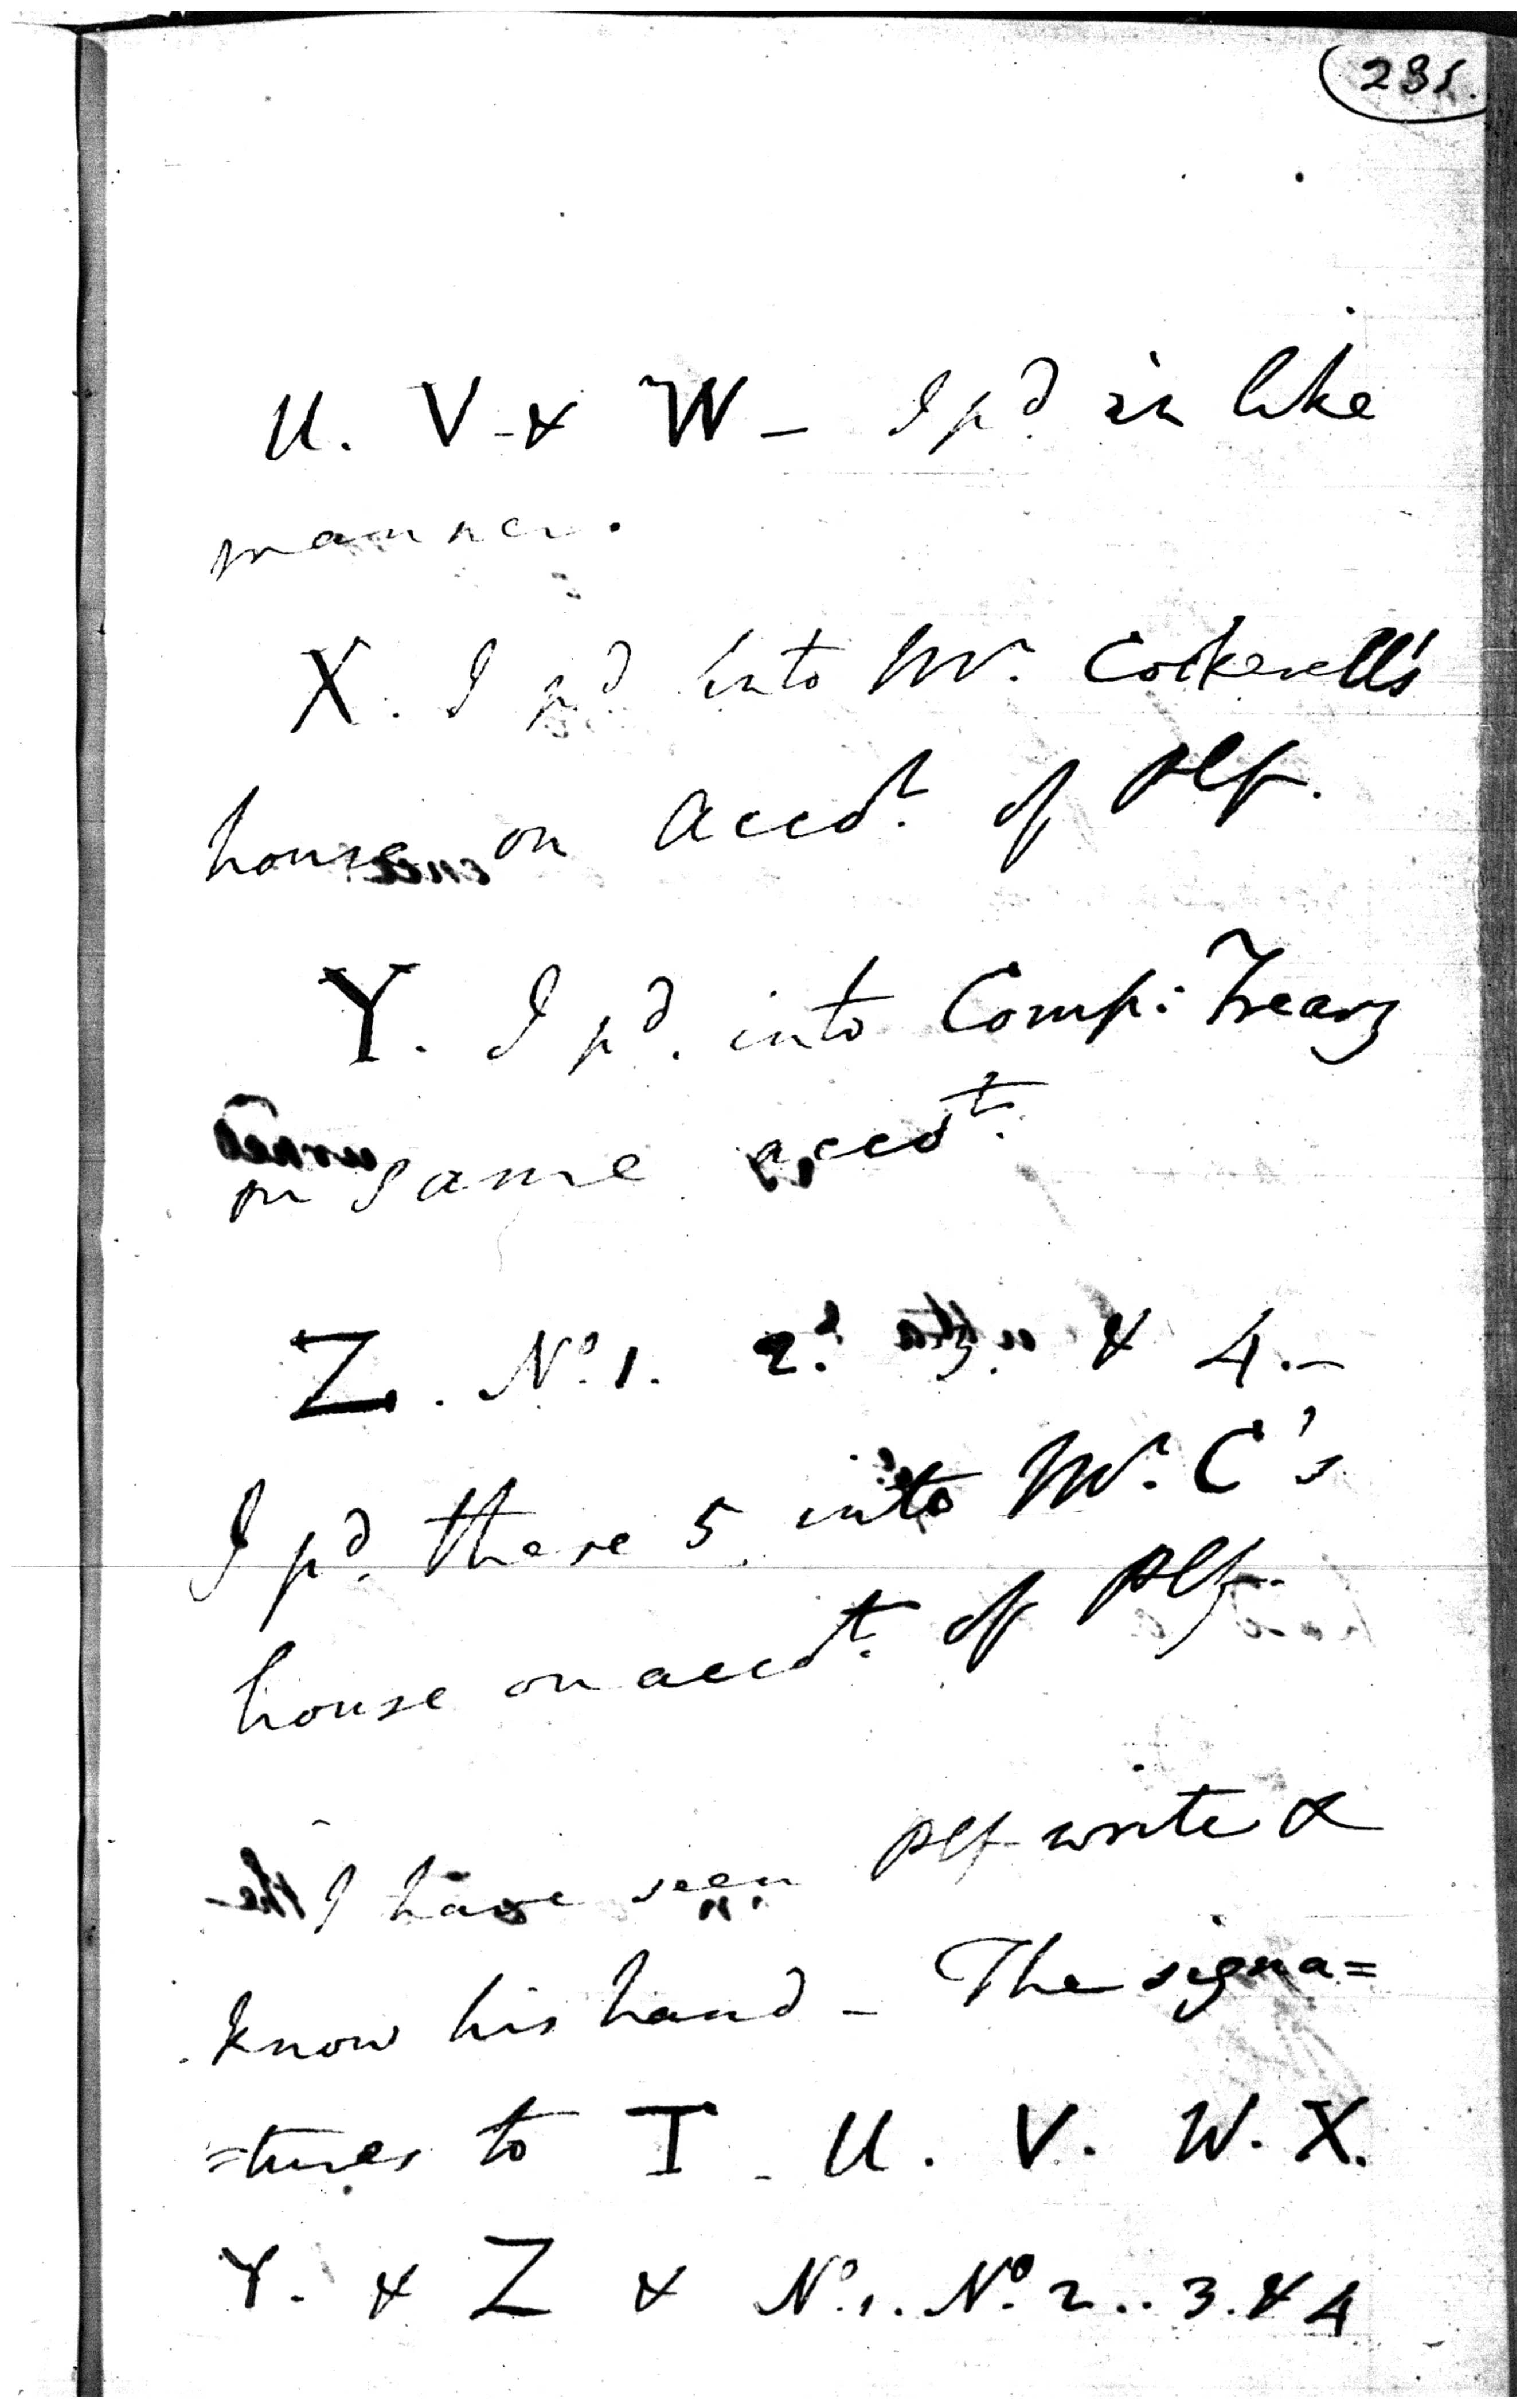 235.
U. V. & W - I pd. in like
manner.
X. I pd. into Mr. Cockerell's
house on accot. of Plf.
Y. I pd. into Comp: Treasy
on same accot.
Z. No. 1. 2. 3. & 4. -
I pd. these 5 into Mr. C's
house on accot. of Plf.
I have seen Plf write &
know his hand - The signa=
=tures to T. U. V. W. X.
Y. & Z & No. 1. No. 2.. 3. & 4